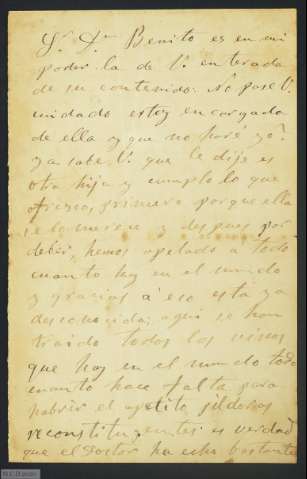 Sr. Dn. Benito es en mi
poder la de V. enterada
de su contenido. No pase V.
cuidado estoy encargada
de ella y que no haré yo?
ya sabe V. que le dije es
otra hija y cumplo lo que
ofresco, primero porque ella
se lo merece y despues por
deber, hemos apelado a todo
cuanto hay en el mundo
y gracias á eso está ya
desconocida; aqui se han
traido todos los vinos
que hay en el mundo todo
cuanto hace falta para
habrir el apetito pildoras
reconstituyentes es verdad
que el Doctor ha echo bastante